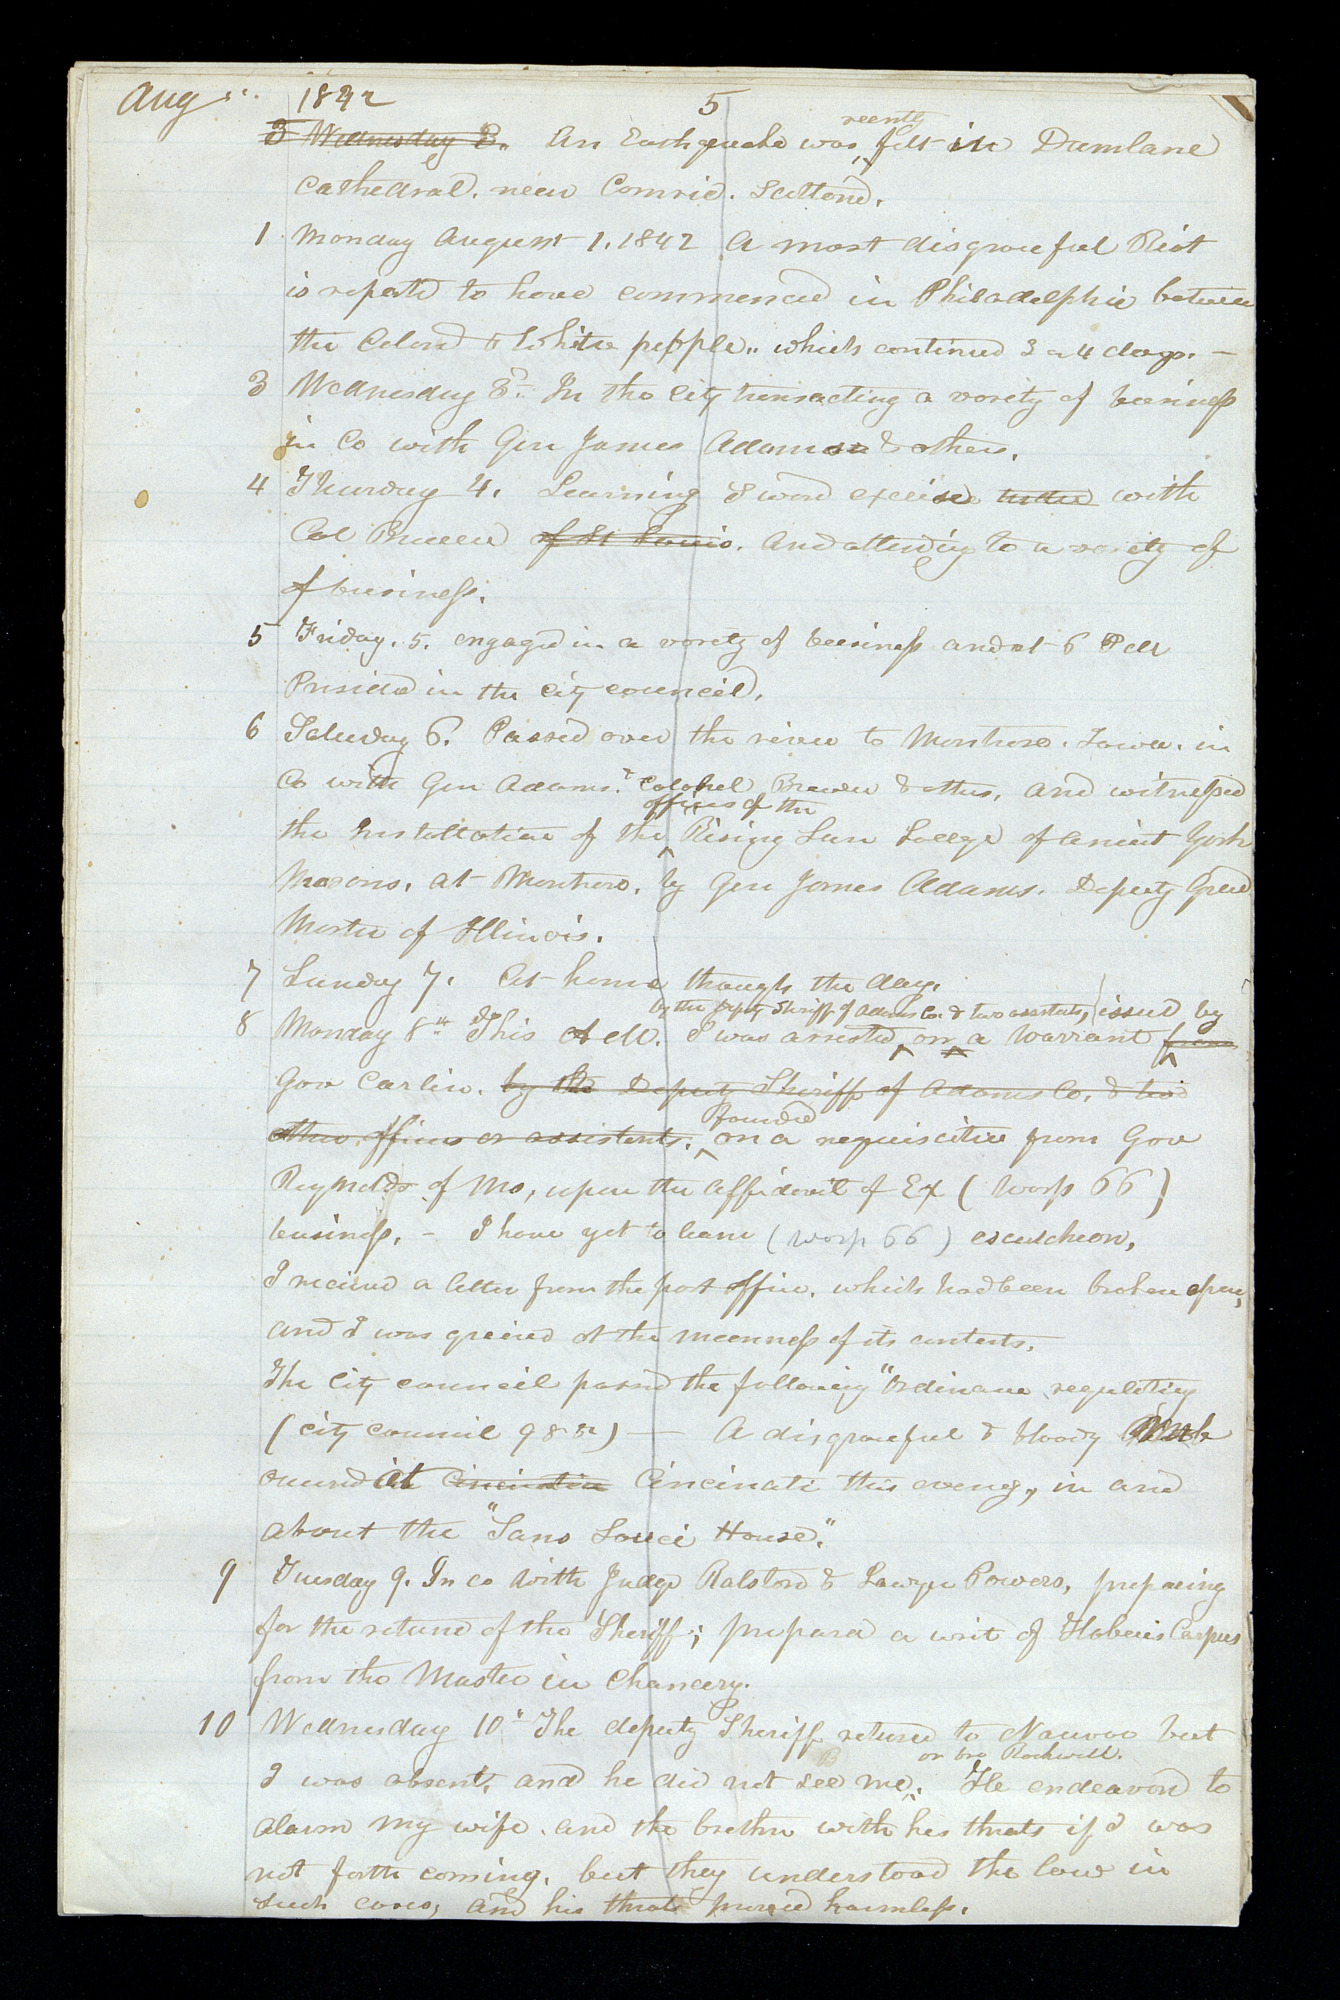 Aug 1842
5
3 Wednesday 3. An Earthquake was recently felt in Dumlane
Cathedral. near Comrie. Scotland.
1 Monday August 1. 1842 A most disgraceful Riot
is reported to have commenced in Philadelphia between
the Colored & White people.. which continued 3 or 4 days. —
3 Wednesday 3d. In the city transacting a variety of business
in Co with Gen James Adams & others.
4 Thursday 4. Learning Sword exercise with
Col Brewer of St Louis. And attending to a variety of
of business.
5 Friday. 5. engaged in a variety of business and at 6 P M
Presided in the city council.
6 Saturday 6. Passed over the river to Montrose. Iowa. in
Co with Gen Adams. Colonel Brewer & others, and witnessed
the Installation of the officers of the Rising Sun Lodge of Ancient York
Masons. at Montrose. by Gen James Adams. Deputy Grand
Master of Illinois.
7 Sunday 7. At home through the day.
by the deputy Sheriff of Adams Co. & two assistants, issued by
8 Monday 8th This A M. I was arrested, on a Warrant from
Gov Carlin. by the Deputy Sheriff of Adams Co. & two
other officers or assistents. Founded on a requisition from Gov
Reynolds of Mo, upon the Affidavit of Ex (Wasp 66)
business. – I have yet to learn (Wasp 66) escutcheon,
I recieved a letter from the post office. which had been broken open,
and I was grieved at the meanness of its contents.
The City council passed the following "Ordinance regulating
(City Council 98 ) — A disgraceful & bloody Mob
occured at Cincinatin Cincinati this evening, in and
about the "Sans Souci House."
9 Tuesday 9. In co with Judge Ralston & Lawyer Powers, preparing
for the return of the Sheriff; prepared a writ of Habeus Corpus
from the Master in Chancery.
10 Wednesday 10th The deputy Sheriff returned to Nauvoo but
I was absent, and he did not see me. or bro Rockwell. He endeavord to
alarm my wife. and the brethrn with his threats if I was
not forth coming, but they understood the law in
such cases, and his threats proved harmless.